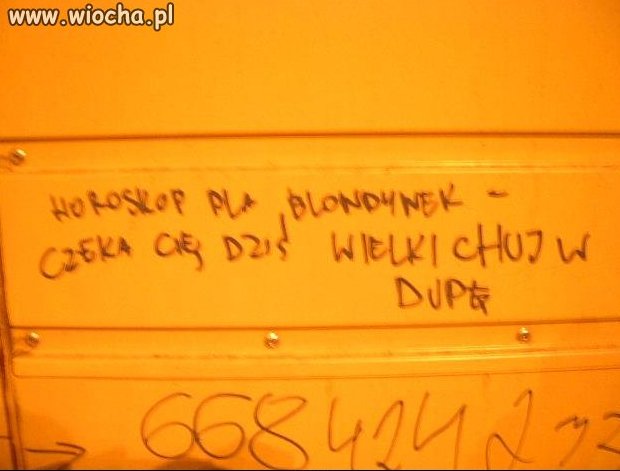 www.wiocha.pl
HOROSKOP DLA BLONDYNEK -
CZEKA CIĘ DZIŚ WIELKI CHUJ W
DUPĘ
668 424 2